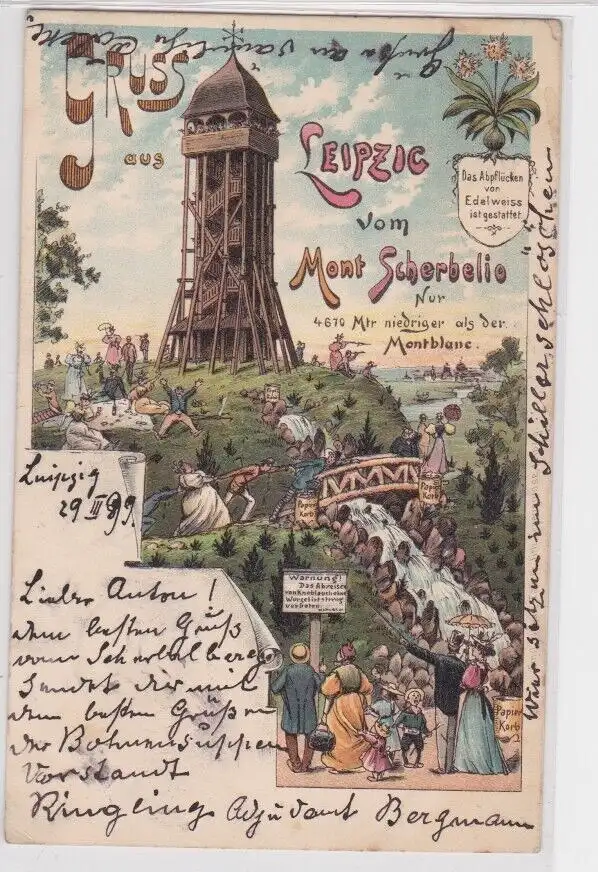 Gruss
aus
Leipzig
vom
Mont Scherbelio
Nur
4670 Mtr niedriger als der
Montblanc.
Das Abpflücken
von
Edelweiss
ist gestattet
Leipzig
29 III 99.
Papier
Korb
Papier
Korb
Warnung!
Das Abreissen
von Knoblauch ohne
Wurzel ist streng
verboten.
Papier
Korb
Lieber Anton!
den besten Gruß
vom Scherbelberg
sendet dir mit
den besten Grüßen
der Bohnensuppen
Vorstandt
Ringling Adjudant Bergmann
Wir sitzen im Schillerschlösschen
Gruß an